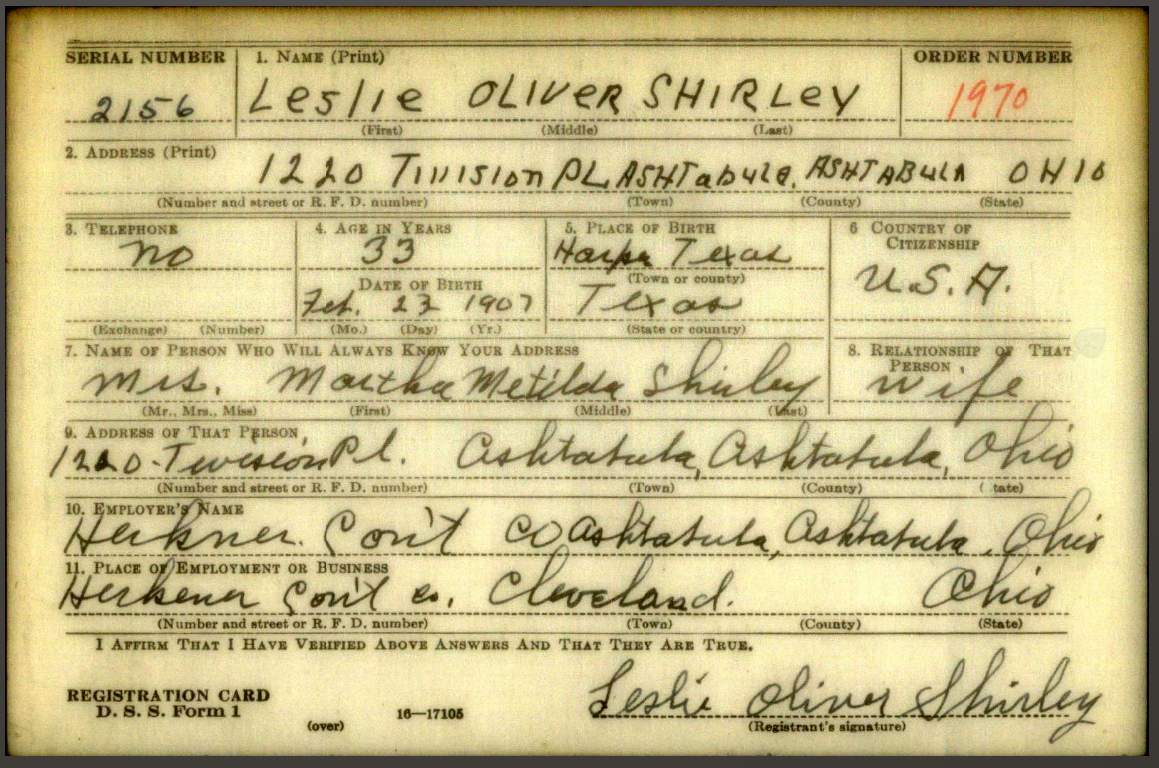 SERIAL NUMBER 1. NAME (Print) ORDER NUMBER
2156 Leslie OLIVER SHIRLEY 1970
(First) (Middle) (Last)
2. ADDRESS (Print)
1220 Tivision PL ASHTabula, ASHTABULA OHIO
(Number and street or R. F. D. number) (Town) (County) (State)
3. TELEPHONE 4. AGE IN YEARS 5. PLACE OF BIRTH 6 COUNTRY OF CITIZENSHIP
no 33 Harper Texas U.S.A.
DATE OF BIRTH (Town or county)
Feb. 23 1907 Texas
(Exchange) (Number) (Mo.) (Day) (Yr.) (State or country)
7. NAME OF PERSON WHO WILL ALWAYS KNOW YOUR ADDRESS 8. RELATIONSHIP OF THAT PERSON
Mrs. Martha Metilda Shirley wife
(Mr., Mrs., Miss) (First) (Middle) (Last)
9. ADDRESS OF THAT PERSON
1220-Tivision Pl. Ashtabula, Ashtabula, Ohio
(Number and street or R. F. D. number) (Town) (County) ( tate)
10. EMPLOYER'S NAME
Herkner. Con't CO Ashtabula, Ashtabula, Ohio
11. PLACE OF EMPLOYMENT OR BUSINESS
Herkener Con't co. Cleveland. Ohio
(Number and street or R. F. D. number) (Town) (County) (State)
I AFFIRM THAT I HAVE VERIFIED ABOVE ANSWERS AND THAT THEY ARE TRUE.
REGISTRATION CARD
D. S. S. Form 1 16—17105 Leslie Oliver Shirley
(over) (Registrant's signature)